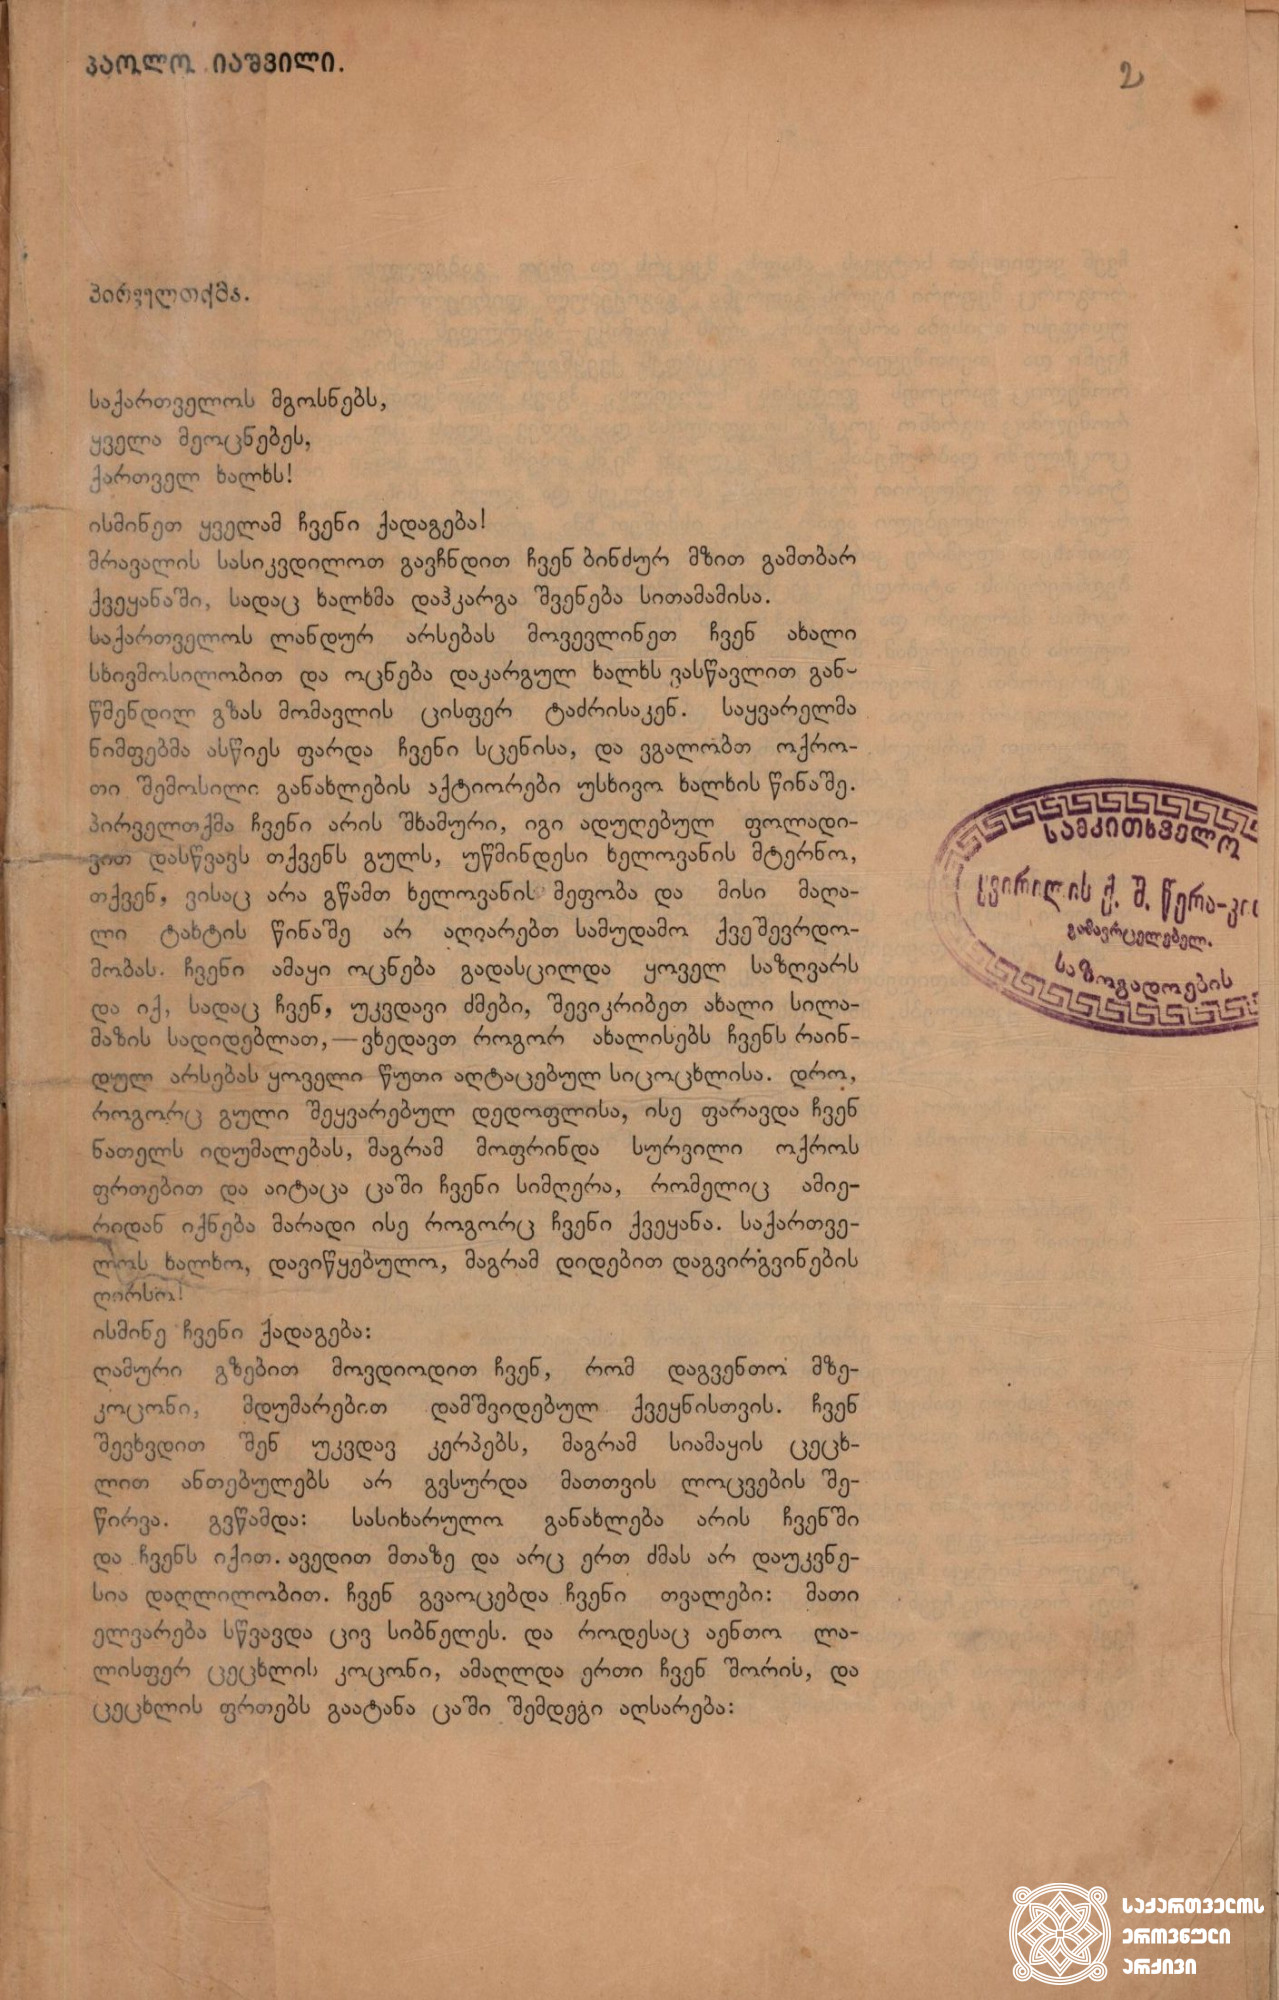 პაოლო იაშვილი.
2
პირველთქმა.
საქართველოს მგოსნებს,
ყველა მეოცნებეს,
ქართველ ხალხს!
ისმინეთ ყველამ ჩვენი ქადაგება!
მრავალის სასიკვდილოთ გავჩნდით ჩვენ ბინძურ მზით გამთბარ
ქვეყანაში, სადაც ხალხმა დაჰკარგა შვენება სითამამისა.
საქართველოს ლანდურ არსებას მოვევლინეთ ჩვენ ახალი
სხივმოსილობით და ოცნება დაკარგულ ხალხს ვასწავლით გან-
წმენდილ გზას მომავლის ცისფერ ტაძრისაკენ. საყვარელმა
ნიმფებმა ასწიეს ფარდა ჩვენი სცენისა, და ვგალობთ ოქრო-
თი შემოსილი განახლების აქტიორები უსხივო ხალხის წინაშე.
პირველთქმა ჩვენი არის შხამური, იგი ადუღებულ ფოლადი-
ვით დასწვავს თქვენს გულს, უწმინდესი ხელოვანის მტერნო,
თქვენ, ვისაც არა გწამთ ხელოვანის მეფობა და მისი მაღა-
ლი ტახტის წინაშე არ აღიარებთ სამუდამო ქვეშევრდო-
მობას. ჩვენი ამაყი ოცნება გადასცილდა ყოველ საზღვარს
და იქ, სადაც ჩვენ, უკვდავი ძმები, შევიკრიბეთ ახალი სილა-
მაზის სადიდებლათ,—ვხედავთ როგორ ახალისებს ჩვენს რაინ-
დულ არსებას ყოველი წუთი აღტაცებულ სიცოცხლისა. დრო,
როგორც გული შეყვარებულ დედოფლისა, ისე ფარავდა ჩვენ
ნათელს იდუმალებას, მაგრამ მოფრინდა სურვილი ოქროს
ფრთებით და აიტაცა ცაში ჩვენი სიმღერა, რომელიც ამიე-
რიდან იქნება მარადი ისე როგორც ჩვენი ქვეყანა. საქართვე-
ლოს ხალხო, დავიწყებულო, მაგრამ დიდებით დაგვირგვინების
ღირსო!
ისმინე ჩვენი ქადაგება:
ღამური გზებით მოვდიოდით ჩვენ, რომ დაგვენთო მზე-
კოცონი, მდუმარებით დამშვიდებულ ქვეყნისთვის. ჩვენ
შევხვდით შენ უკვდავ კერპებს, მაგრამ სიამაყის ცეცხ-
ლით ანთებულებს არ გვსურდა მათთვის ლოცვების შე-
წირვა. გვწამდა: სასიხარულო განახლება არის ჩვენში
და ჩვენს იქით. ავედით მთაზე და არც ერთ ძმას არ დაუკვნე-
სია დაღლილობით. ჩვენ გვაოცებდა ჩვენი თვალები: მათი
ელვარება სწვავდა ცივ სიბნელეს. და როდესაც აენთო ლა-
ლისფერ ცეცხლის კოცონი, ამაღლდა ერთი ჩვენ შორის, და
ცეცხლის ფრთებს გაატანა ცაში შემდეგი აღსარება:
სამკითხველო
ყვირილის ქ. შ. წერა-კი
გამავრცელებელ.
საზოგადოების
საქართველოს
ეროვნული
არქივი